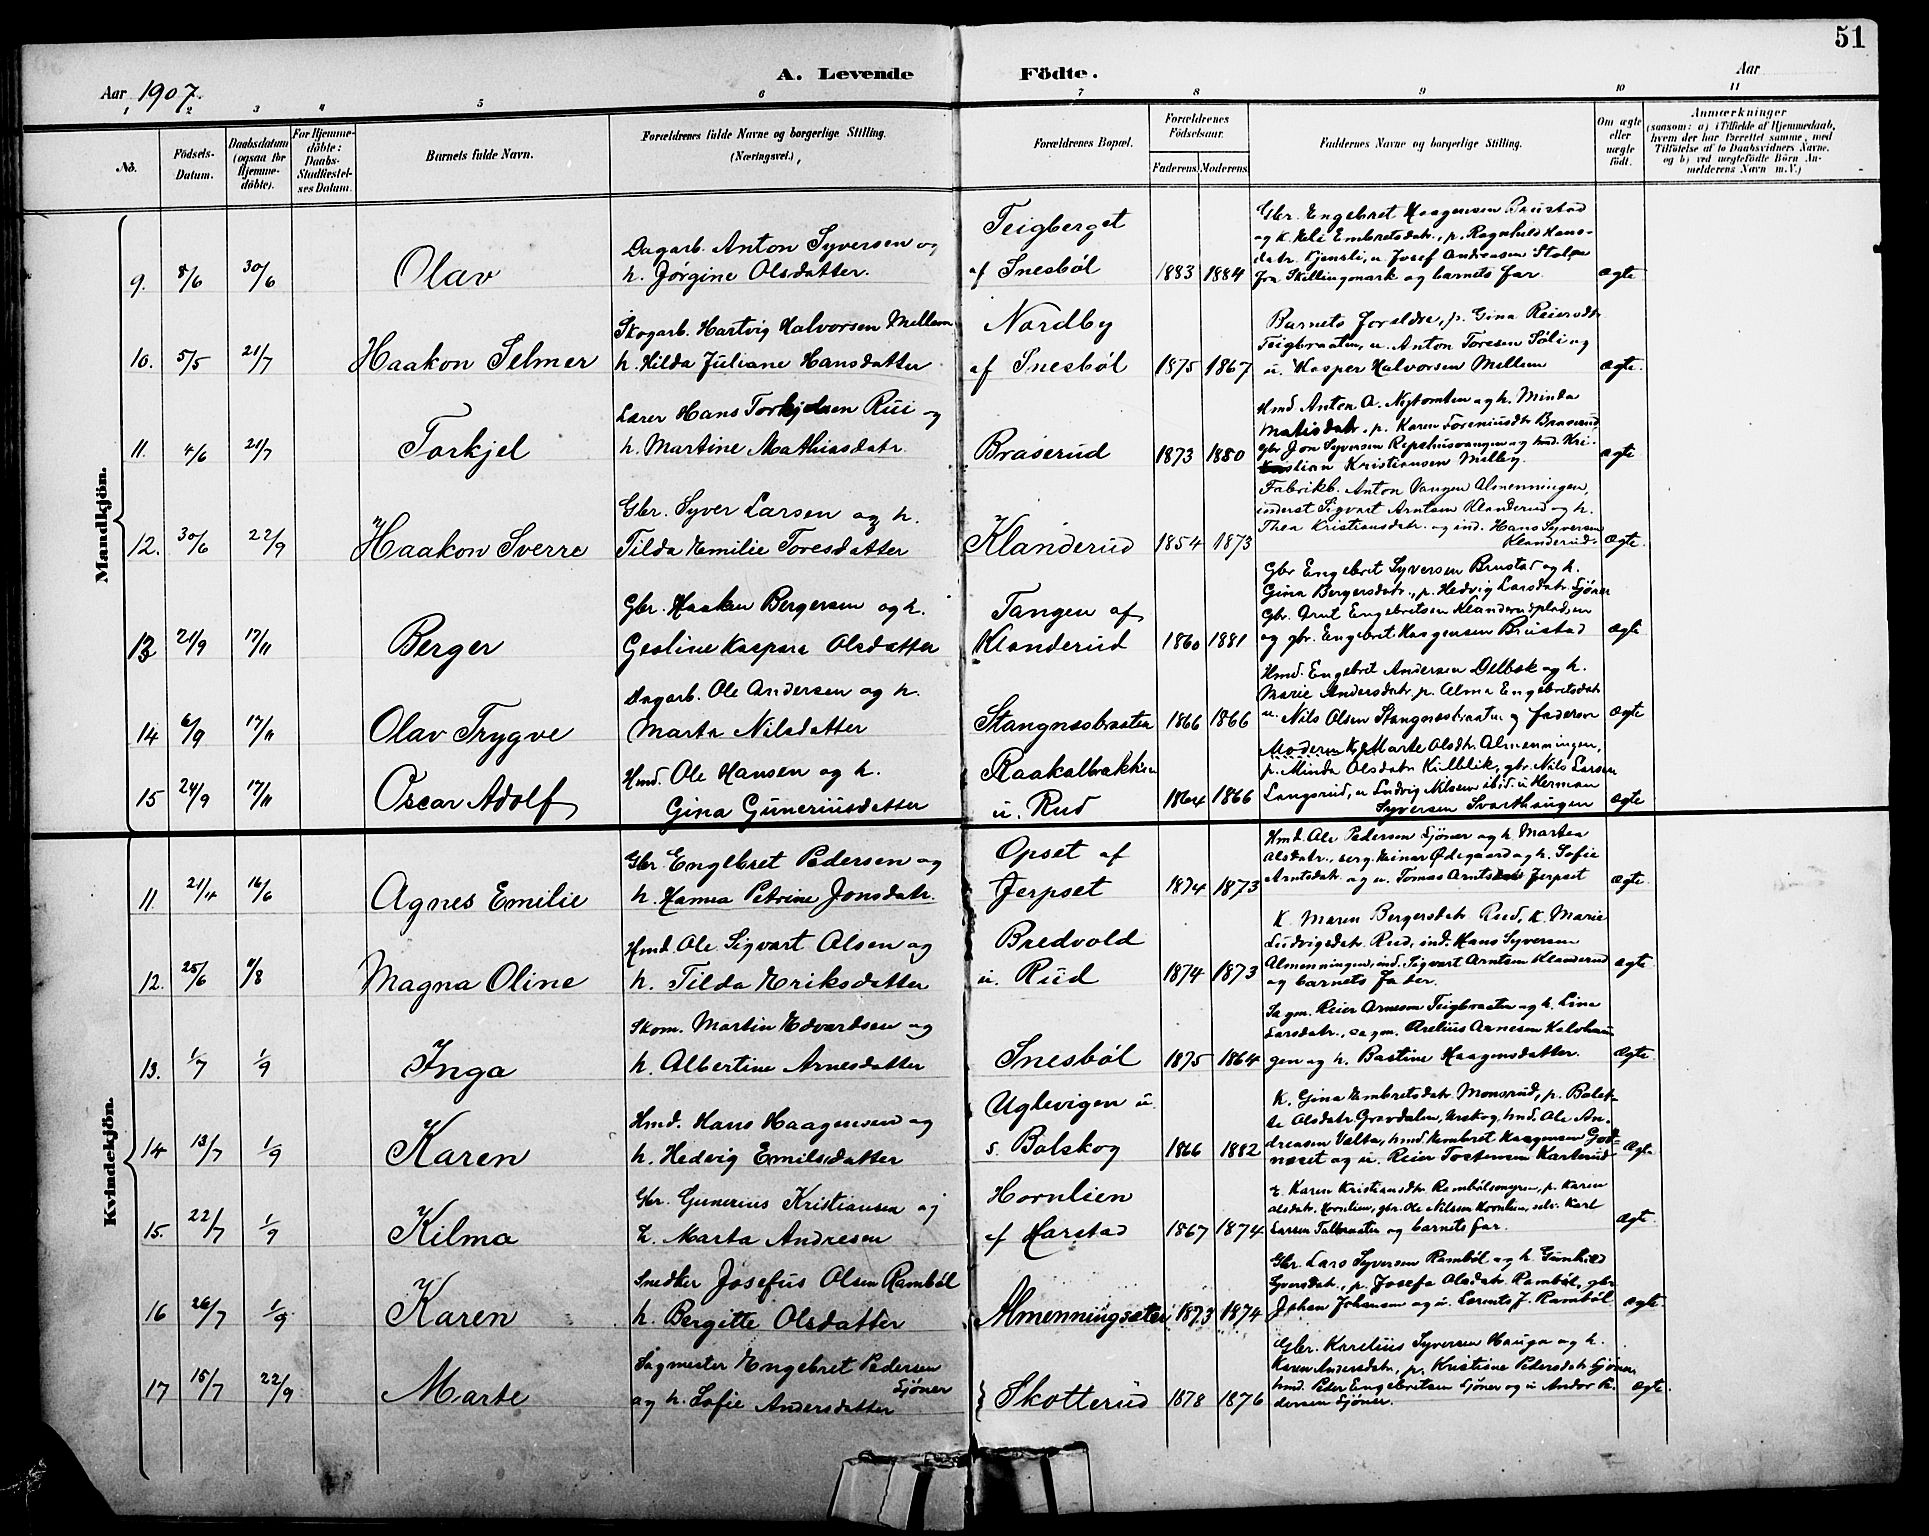 51
A. Levende Födte.
Aar 1907.
Aar
1 2 3 4 5 6 7 8 9 10 11
No.
Födsels-Datum.
Daabsdatum (ogsaa for Hjemme-döbte).
For Hjemme-döbte: Daabs-Stadfæstel-ses Datum.
Barnets fulde Navn.
Forældrenes fulde Navne og borgerlige Stilling.
(Næringsvei.),
Forældrenes Bopæl.
Forældrenes Födselsaar.
Faderens Moderens
Faddernes Navne og borgerlige Stilling.
Om ægte eller uægte födt.
Anmærkninger
(saasom: a) i Tilfælde af Hjemmedaab,
hvem der har forrettet samme, med
Tilföielse af to Daabsvidners Navne.
og b) ved uægtefödte Börn An-
melderens Navn m.V.)
Mandkjön.
9. 8/6 30/6 Olav
Dagarb. Anton Syversen og
h. Jørgine Olsdatter.
Teigberget
af Snesbøl
1883 1884
Gbr. Engebret Haagensen Brustad
og k. Embretsdatr., p. Ragnhild Hans-
datr. u. Josef Andreasen
fra Skillingmark og barnets far.
ægte
10. 5/5 21/7 Haakon Selmer
Skogarb. Hartvig Halvorsen Mellem
h. Hilda Juliane Hansdatter
Nordby
af Snesbøl
1875 1867
Barnets foreldre, p. Gina Reiersdtr
Teigbraaten, u. Anton Toresen og
u. Kasper Halvorsen Mellem
ægte.
11. 4/6 21/7 Torkjel
Lærer Hans Torkjelsen Rui og
h. Martine Mathiasdatr.
Braserud
1873 1880
Hmd Anton A. Nytomten og h. Minda
Matisdatr. p. Karen Foreniusdtr Braserud
gbr Jon Syversen Ripshusvangen og hmd. Kri-
stian Kristiansen Melby.
ægte
12. 30/6 22/9 Haakon Sverre
Gbr. Syver Larsen og h.
Tilda Emilie Toresdatter
Klanderud
1854 1873
Fabrikb. Anton Vangen Almenningen,
inderst Sigvart Arntsen Klanderud og h.
Thea Kristiansdatr. og ind. Hans Syversen
Klanderud.
ægte.
13 21/9 17/11 Berger
Gbr. Haaken Bergersen og h.
Geoline Kaspara Olsdatter
Tangen af
Klanderud
1860 1881
Gbr Engebret Syversen Brustad og h.
Gina Bergersdatr., p. Hedvig Larsdatr. Sjöner
Gbr. Arnt Engebretsen Klanderudpladsen
og gbr. Engebret Haagensen Brustad
ægte
14 6/9 17/11 Olav Trygve
Dagarb. Ole Andersen og h.
Marta Nilsdatter
Stangnesbraaten
1866 1866
Hmd. Engebret Andersen Delbæk og h.
Marie Andersdatr. p. Alma Engebretsdatr
u. Nils Olsen Stangnesbraaten og faderen
ægte
15 24/9 17/11 Oscar Adolf
Hmd. Ole Hansen og h.
Gina Guneriusdatter
Raakalbrakken
u. Rud
1864 1866
Moderen K. Marte Olsdtr. Almenningen,
p. Minda Olsdatr. Kilblik, gbr. Nils Larsen
Langsrud, u. Ludvig Nilsen ibid. u. Herman
Syversen Svarthaugen
ægte
Kvindekjön.
11 21/4 16/6 Agnes Emilie
Gbr. Engebret Pedersen og
h. Hamea Petrine Jonsdatr.
Opset af
Jerpset
1874 1873
Hmd. Ole Pedersen Sjöner og h. Martea
Olsdatr., serg. Einar Ødegaard og h. Sofie
Arntsdatr og u. Tomas Arntsen Jerpset
ægte
12. 25/6 11/8 Magna Oline
Hmd. Ole Sigvart Olsen og
h. Tilda Eriksdatter
Bredvold
u. Rud
1874 1873
K. Maren Bergersdatr Rud, K. Marie
Ludvigsdatr. Rud, ind. Hans Syversen
Almenningen, ind. Sigvart Arntsen Klanderud
og barnets Fader.
ægte
13. 1/7 1/9 Inga
Skom. Martin Edvardsen og
h. Albertine Arnesdatter
Snesbøl
1875 1864
Sagm. Reier Arnesen Teigbraaten og h. Lina
Larsdatr., sagm. Arelius Arnesen Kalvhau-
gen og h. Bastine Haagensdatter.
ægte
14 13/7 1/9 Karen
Hmd. Hans Haagensen og
h. Hedvig Emilsdatter
Uglevigen u.
s. Bolskog
1866 1882
K. Gina Embretsdatr. Monsrud, p. Bolet-
te Olsdatr. Gravdalen, Urskog, hmd. Ole An-
dreasen Valta, hmd. Embret Haagensen God-
neset og u. Reier Tostensen Karterud
ægte
15. 22/7 1/9 Kilma
Gbr. Gunerius Kristiansen og
h. Marta Andresen
Hornlien
af Harstad
1867 1874
E. Karen Kristiansdtr. Rambölsengen, p. Karen
Olsdatr. Hornlien, gbr. Ole Nilsen Hornlien, Karl
Larsen Talbraaten og barnets far.
ægte.
16 26/7 1/9 Karen
Snedker Josefus Olsen Ramböl
h. Bergitte Olsdatter
Almenningsæter
1873 1874
Gbr. Lars Syversen Ramböl og h. Gunhild
Syversdatr., p. Josefa Olsdatr. Ramböl, gbr.
Johan Johansen og u. Lorents J. Ramböl.
ægte
17 15/7 22/9 Marte
Sagmester Engebret Pedersen
Sjöner
og h. Sofie Andersdatter
} Skotterud
1878 1876
Gbr. Karelius Syversen Hauga og h.
Karen Andersdatr., p. Kristine Pedersdatr. Sjöner,
hmd. Peder Engebretsen Sjöner og u. Andor Pe-
dersen Sjöner.
ægte